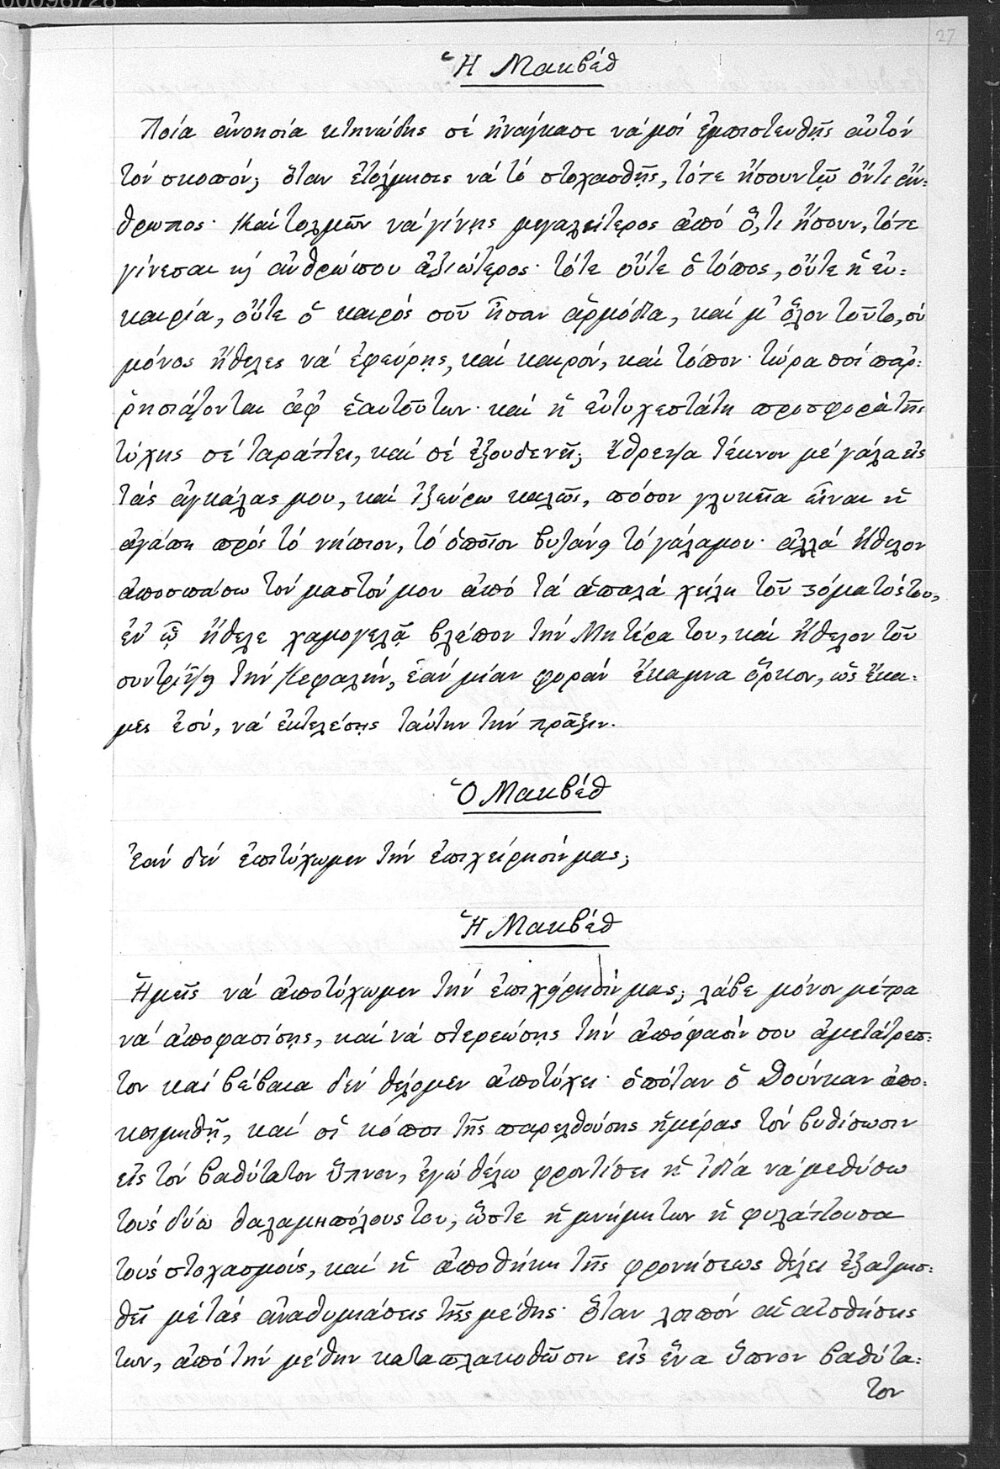 27
Ἡ Μακβέθ
Ποία ἀνοησία κτηνώδης σέ ἠνάγκασε νά μοί ἐμπιστευθῇς αὐτόν
τόν σκοπόν; ὅταν ἐτόλμησες νά τό στοχασθῇς, τότε ἦσουν τῷ ὄντι ἄν-
θρωπος· καί τολμῶν νά γίνῃς μεγαλείτερος ἀπό ὅ,τι ἦσουν, τότε
γίνεσαι κ᾽ ἀνθρώπου ἀξιώτερος· τότε οὔτε ὁ τόπος, οὔτε ἡ εὐ-
καιρία, οὔτε ὁ καιρός σοῦ ἦσαν ἁρμόδια, καί μ᾽ ὅλον τοῦτο, σύ
μόνος ἤθελες νά ἐφεύρῃς, καί καιρόν, καί τόπον· τώρα ποί παρ-
ρησιάζονται ἀφ᾽ ἑαυτοῦ των· καί ἡ εὐτυχεστάτη προσφορά τῆς
τύχης σέ ταράττει, καί σέ ἐξουδενεῖ; ἔθρεψα τέκνον μέ γάλα εἰς
τάς ἀγκάλας μου, καί ἰξεύρω καλῶς, πόσον γλυκεῖα εἶναι ἡ
ἀγάπη πρός τό νήπιον, τό ὁποῖον βυζάνῃ τό γάλα μου· ἀλλά ἤθελον
ἀποσπάσω τόν μαστόν μου ἀπό τά ἁπαλά χείλη τοῦ στόματός του,
ἐν ᾧ ἤθελε χαμογελᾷ βλέπον τήν Μητέρα του, καί ἤθελον τοῦ
συντρίψῃ τήν κεφαλήν, ἐάν μίαν φοράν ἔκαμνα ὅρκον, ὡς ἔκα-
μες ἐσύ, νά ἐκτελέσῃς ταύτην τήν πρᾶξιν.
Ὁ Μακβέθ
Ἐάν δέν ἐπιτύχωμεν τήν ἐπιχείρησίν μας;
Ἡ Μακβέθ
Ἡμεῖς νά ἀποτύχωμεν τήν ἐπιχήρησίν μας; λάβε μόνον μέτρα
νά ἀποφασίσῃς, καί νά στερεώσῃς τήν ἀπόφασίν σου ἀμετάτρεπ-
τον καί βέβαια δέν θέλομεν ἀποτύχει· ὁπόταν ὁ Δούνκαν ἀπο-
κοιμηθῇ, καί οἱ κόποι τῆς παρελθούσης ἡμέρας τόν βυθίσωσιν
εἰς τόν βαθύτατον ὕπνον, ἐγώ θέλω φροντίσει ἡ ἰδία νά μεθύσω
τούς δύω θαλαμηπόλους του, ὥστε ἡ μνήμη των ἡ φυλάττουσα
τούς στοχασμούς, καί ἡ ἀποθήκη τῆς φρονήσεως θέλει ἐξατμισ-
θεῖ μέ τάς ἀναθυμιάσεις τῆς μέθης· ὅταν λοιπόν αἱ αἰσθήσεις
των, ἀπό τήν μέθην καταπλακωθῶσιν εἰς ἕνα ὕπνον βαθύτα-
τον